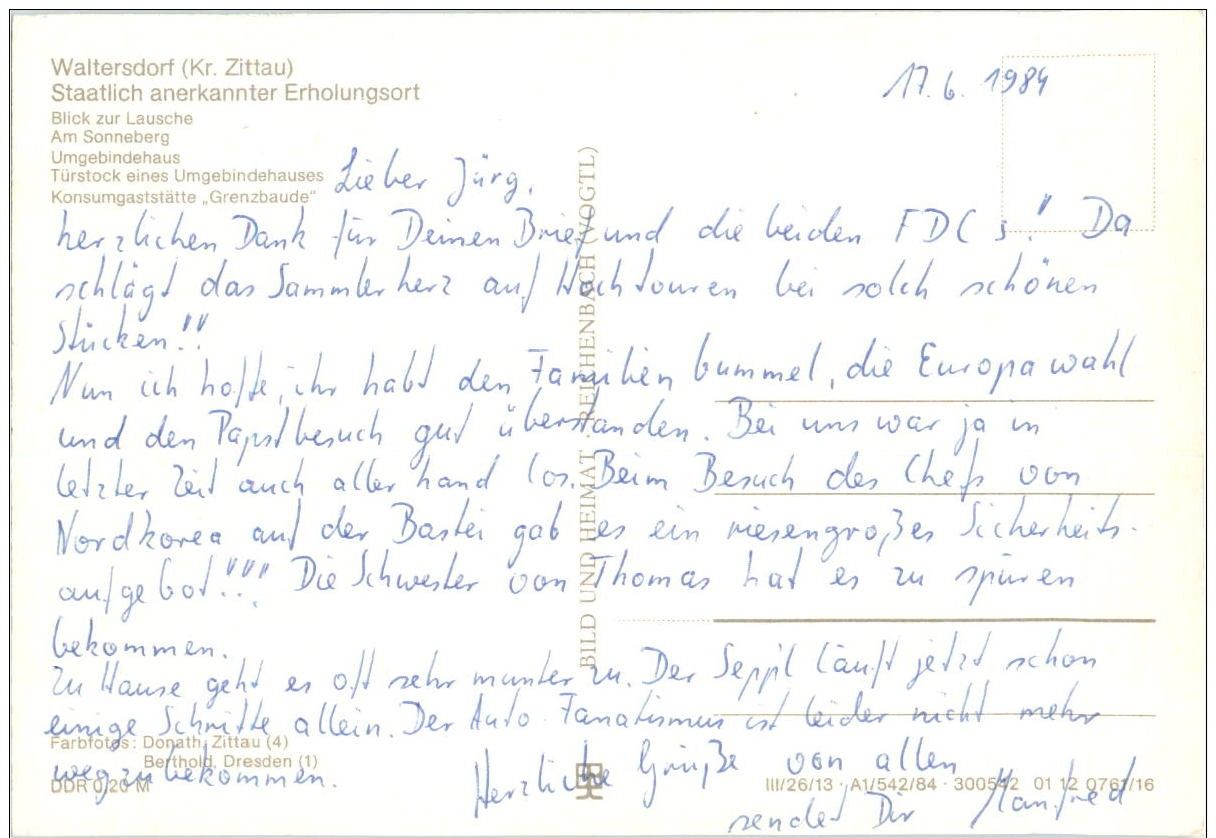 Waltersdorf (Kr. Zittau)
Staatlich anerkannter Erholungsort
Blick zur Lausche
Am Sonneberg
Umgebindehaus
Türstock eines Umgebindehauses
Konsumgaststätte „Grenzbaude"
17. 6. 1984
Lieber Jürg,
herzlichen Dank für Deinen Brief und die beiden FDC s! Da
schlägt das Sammlerherz auf Hochtouren bei solch schönen
Stücken!!
Nun ich hoffe, ihr habt den Familienbummel, die Europawahl
und den Papstbesuch gut überstanden. Bei uns war ja in
letzter Zeit auch allerhand los. Beim Besuch des Chefs von
Nordkorea auf der Bastei gab es ein riesengroßes Sicherheits-
aufgebot!!! Die Schwester von Thomas hat es zu spüren
bekommen.
Zu Hause geht es oft sehr munter zu. Der Seppil läuft jetzt schon
einige Schritte allein. Der Auto-Fanatismus ist leider nicht mehr
wegzubekommen.
Herzliche Grüße von allen
sendet Dir Manfred
BILD UND HEIMAT · REICHENBACH (VOGTL)
Farbfotos: Donath, Zittau (4)
Berthold, Dresden (1)
DDR 0,20 M
III/26/13 · A1/542/84 · 300542 01 12 0761/16